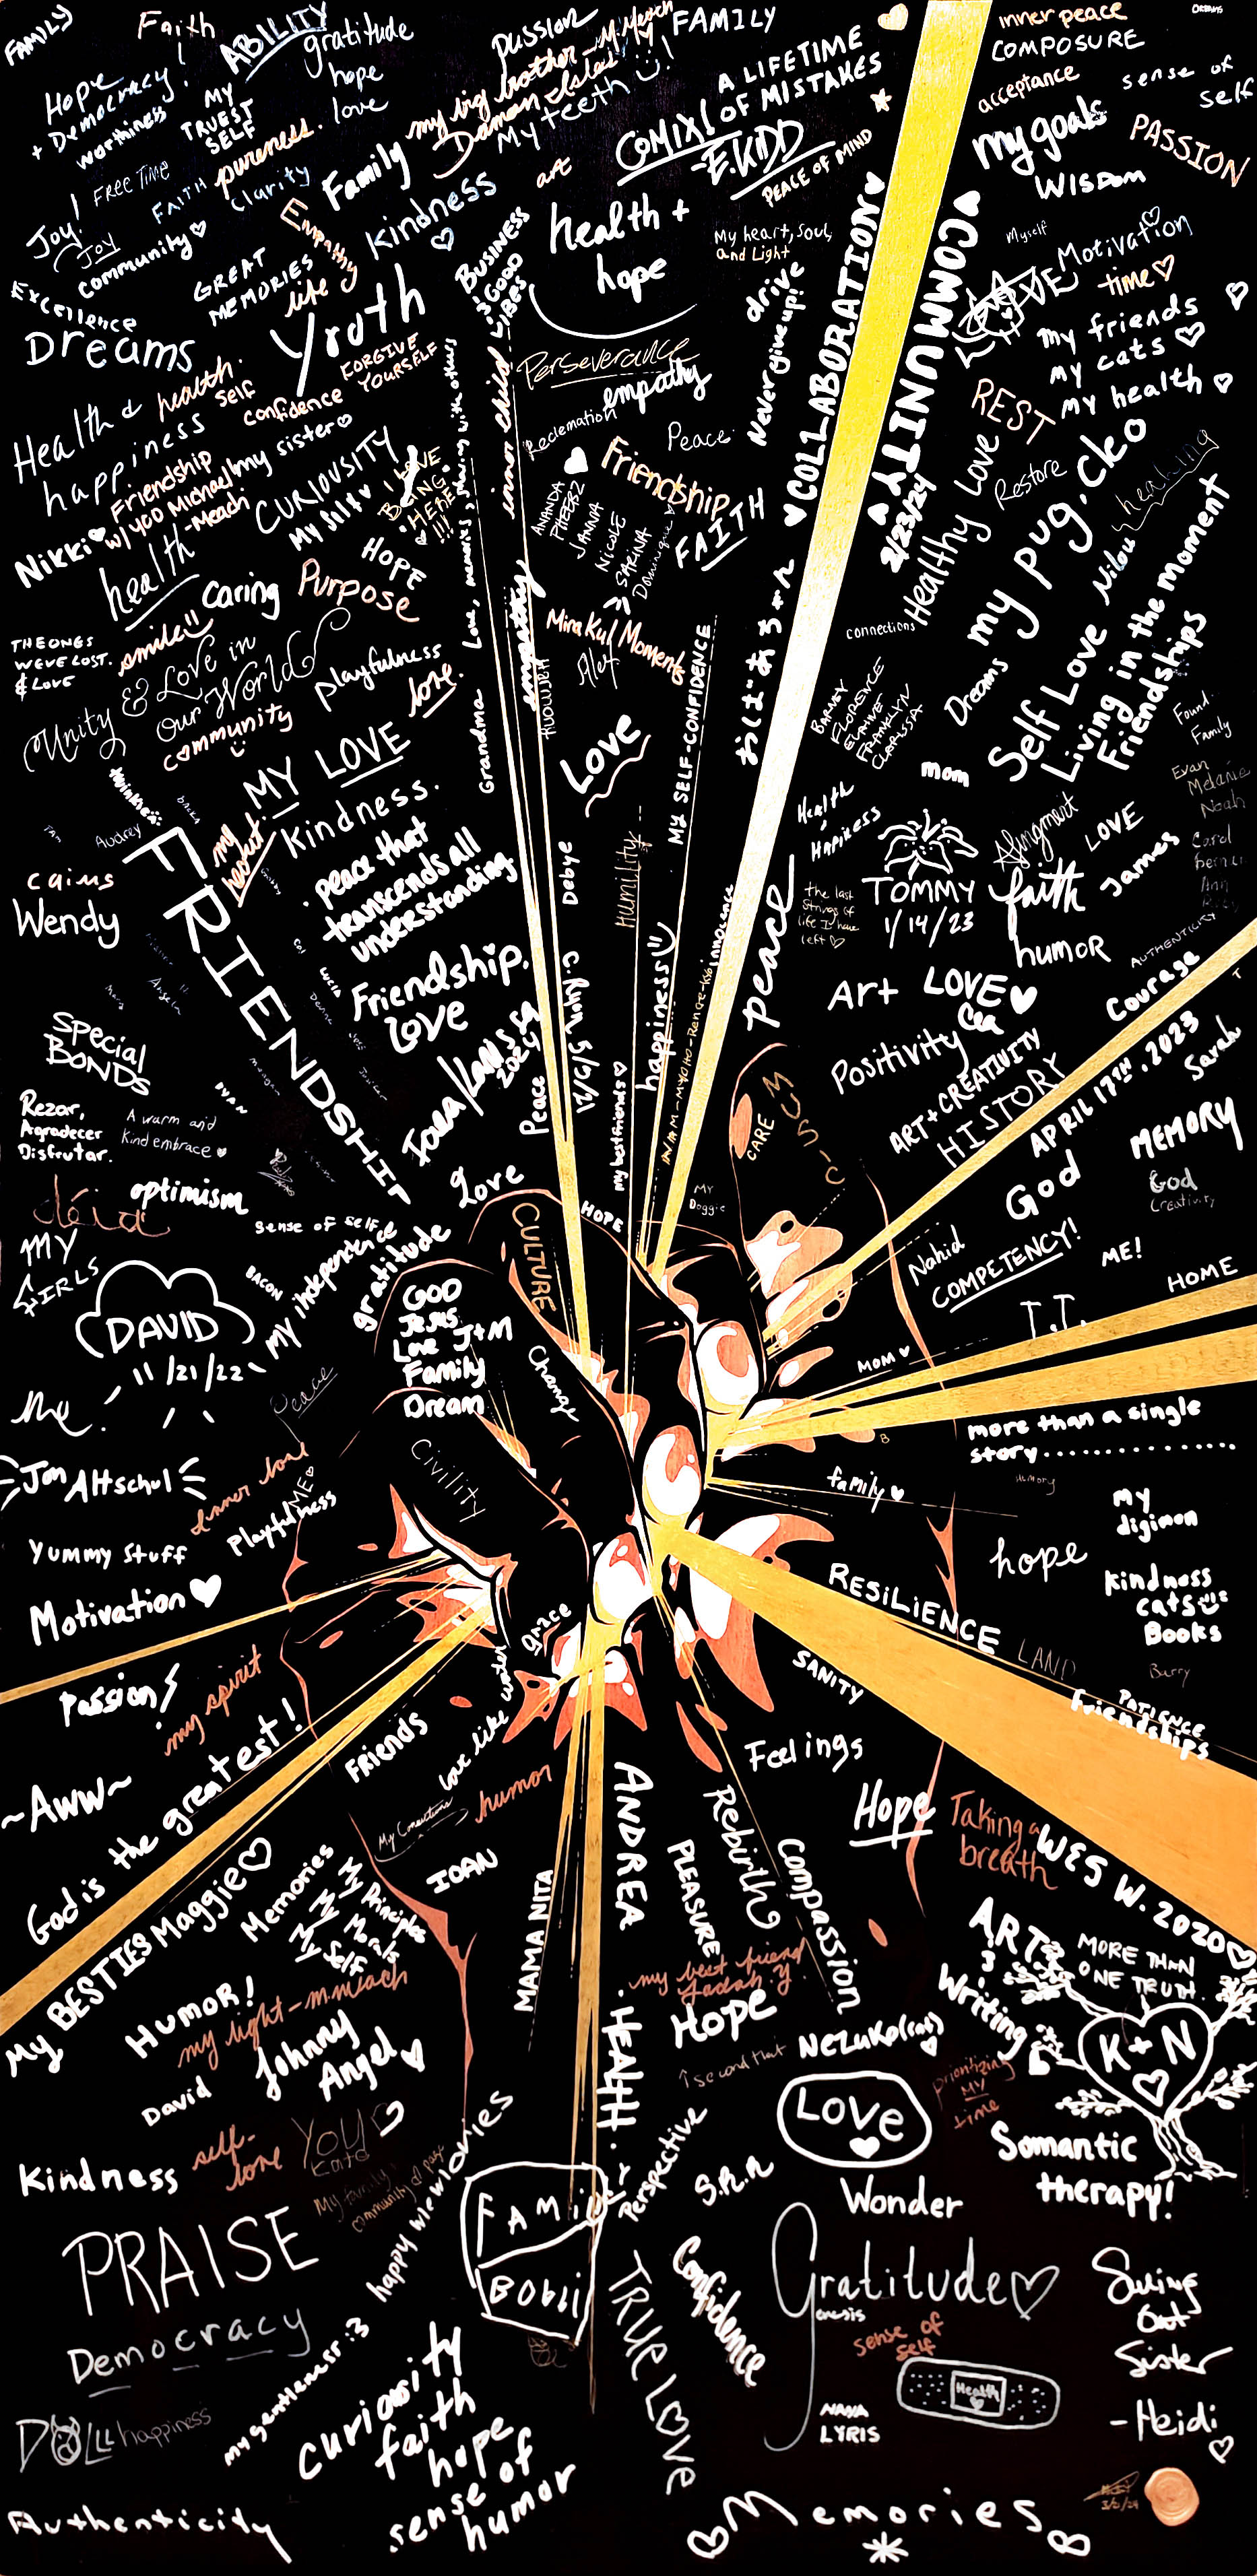 FAMILY
Faith
ABILITY
gratitude
hope
love
Hope
+ Democracy!
worthiness
MY
TRUEST
SELF
pureness.
passion
my big brother - M.Meach
Damon Isles
My teeth
FAMILY
A LIFETIME
OF MISTAKES
COMIX!
-E.KIDD
PEACE OF MIND
inner peace
COMPOSURE
acceptance
sense of
self
my goals
PASSION
WISDOM
FREE TIME
FAITH
Clarity
Family
Kindness
art
Joy!
Joy
community
Empathy
GREAT
MEMORIES
life
BUSINESS
& GOOD
VIBES
health +
hope
My heart, Soul,
and Light
drive
Never give up!
COLLABORATION
COMMUNITY
2/23/24
Myself
Motivation
time
My friends
my cats
my health
Excellence
Dreams
Health &
happiness
health.
self
confidence
FORGIVE
YOURSELF
Perseverance
empathy
Reclemation
Peace.
inner child
Love, memories, sharing with others
REST
Restore
healing
Friendship
w/400 Michael
-Meach
my sister
CURIOUSITY
My silly
I LOVE
BEING
HERE
!!!
Friendship
FAITH
ANANDA
PHEERZ
JANNA
NICOLE
SARINA
Dominique
Healthy Love
my pug, cleo
Nilou
Nikki
health
HOPE
caring
Purpose
empathy
Mirakul Moments
Alef
connections
Self Love
Living in the moment
Friendships
Dreams
THE ONES
WE'VE LOST.
& LOVE
smile
Unity & Love in
Our World
community
playfulness
love.
Grandma
Love
MY SELF-CONFIDENCE
BARNEY
FLORENCE
ELAINE
FRANKLYN
CLARISSA
mom
Found
Family
Evan
Melanie
Noah
Carol
MY LOVE
my
heart
Kindness.
Audrey
FRIENDSHIP
peace that
transcends all
understanding
Debye
Humility
happiness
innocence
peace
Health
Happiness
the last
strings of
life I have
left
TOMMY
1/14/23
Alignment
LOVE
faith
James
humor
AUTHENTICITY
cairus
Wendy
Friendship.
love
2024
Peace
C. Ryan 5/6/21
my bestfriends
Art
LOVE
Positivity
ART + CREATIVITY
HISTORY
Courage
APRIL 17TH, 2023
Sarah
Special
BONDS
Rezar,
Agradecer
Disfrutar.
A warm and
kind embrace
DYAN
Love
HOPE
My
Doggie
CARE
MUSIC
God
MEMORY
God
Creativity
optimism
sense of self
My independence
gratitude
BACON
CULTURE
Nahid
COMPETENCY!
ME!
HOME
MY
GIRLS
DAVID
11/21/22
GOD
Jesus
Love J+M
Family
Dream
Change
MOM
me!
Peace
Civility
more than a single
story..............
Jon Altschul
inner love
Playfulness
ME
family
my
digimon
Yummy Stuff
hope
kindness
cats
Books
Motivation
grace
RESILIENCE
LAND
Barry
SANITY
PATIENCE
Friendships
Passion
my spirit
Friends
Love like water
Feelings
~Aww~
God is the greatest!
My Connections
humor
ANDREA
Rebirth
PLEASURE
Compassion
Hope
Taking a
breath
WES W. 2020
My BESTIES Maggie
Memories
My Principles
My Morals
My Self
IOAN
MAMA NITA
my best friend
Hope
HUMOR!
my light - m.meach
Johnny
Angel
David
HEALTH
I second that
NEZUKO(cat)
ART
&
Writing
MORE THAN
ONE TRUTH
K+N
prioritizing
MY
time
LOVE
Somantic
therapy!
Kindness
self-
love
happy new memories
Perspective
S.R.R
Wonder
PRAISE
FAMILY
BOBII
TRUE LOVE
Confidence
Gratitude
Genesis
sense of
self
Swing
Out
Sister
-Heidi
Democracy
my gentleness :3
Health
NANA
LYRIS
DOLL
happiness
curiousity
faith
hope
sense of
humor
Authenticity
Memories